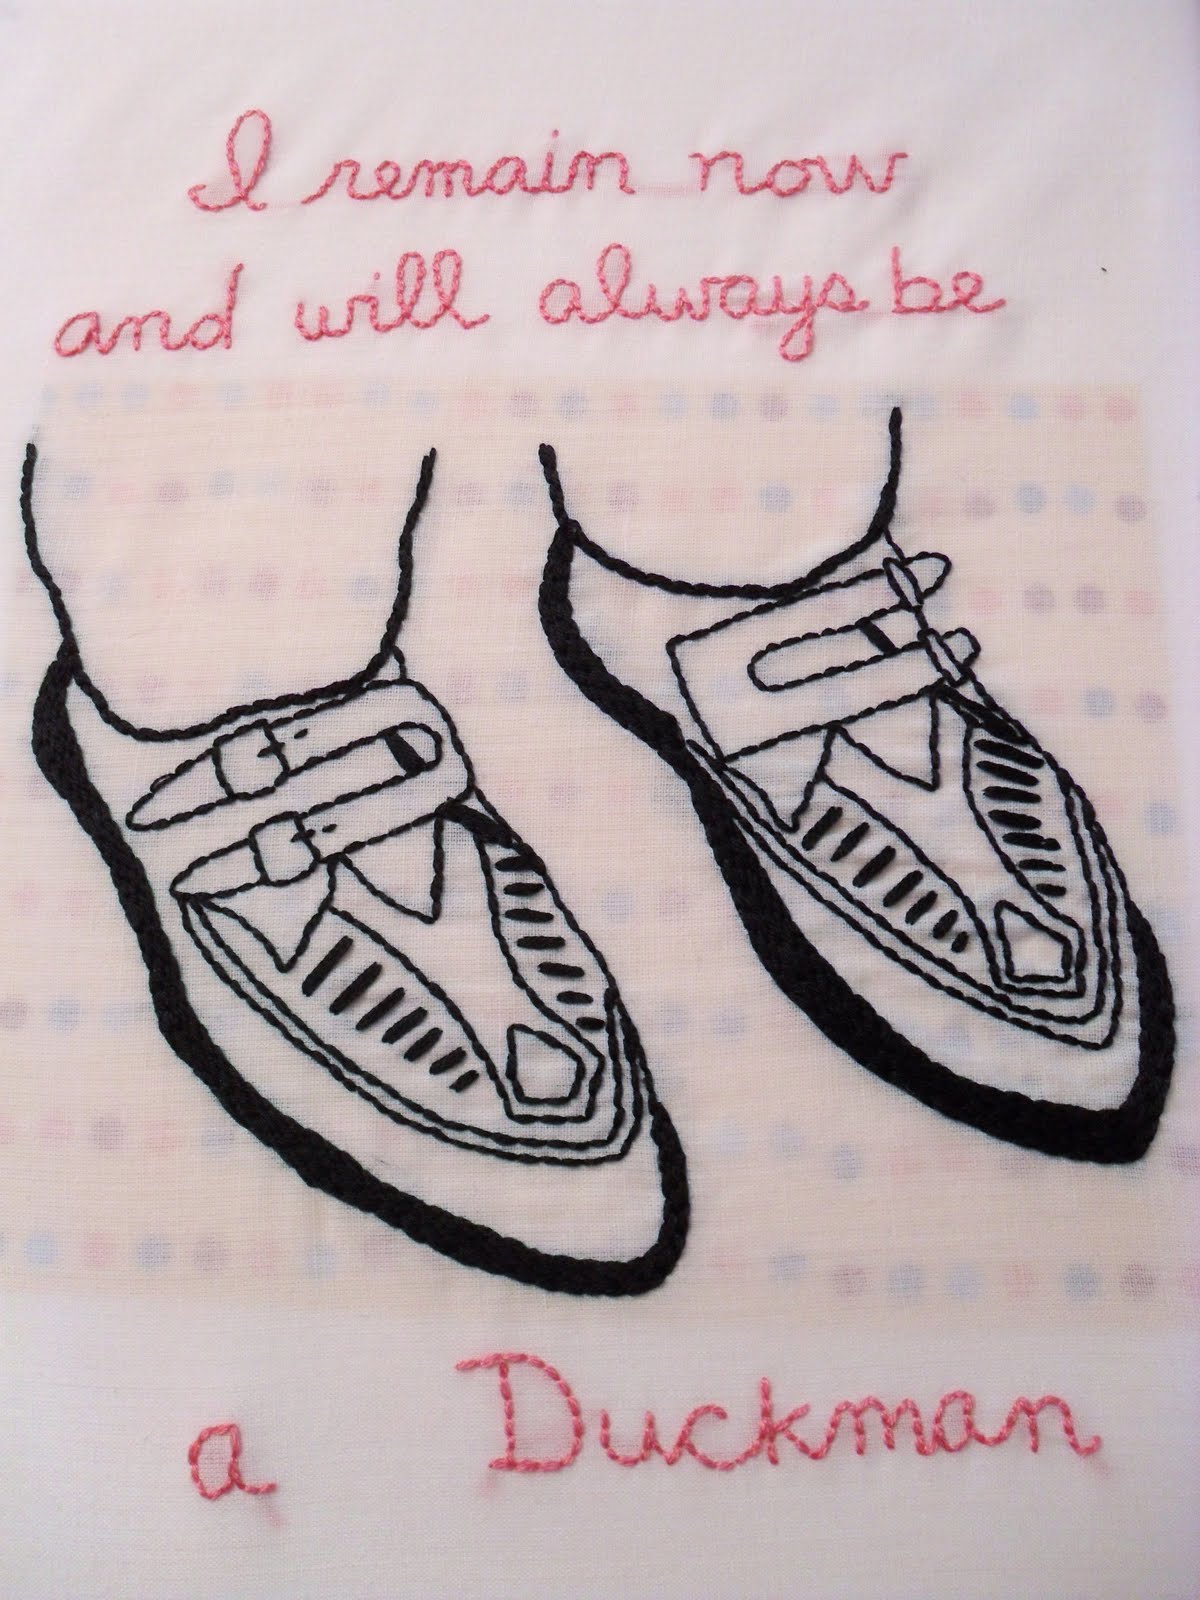 I remain now
and will always be
a Duckman